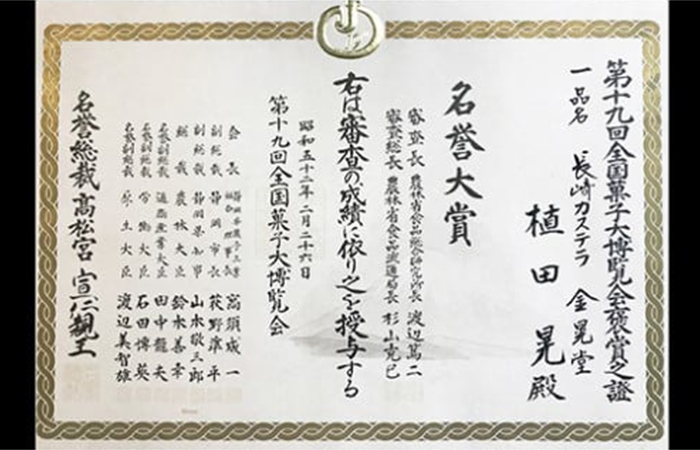 第十九回全国菓子大博覧会褒賞之證
一品名 長崎カステラ 金晃堂
植田 晃殿
名誉大賞
審査長 農林省食品総合研究所長 渡辺篤二
審査総長 農林省食品流通局長 杉山克巳
右は審査の成績に依り之を授与する
昭和五十二年二月二十六日
第十九回全国菓子大博覧会
会長
副総裁 静岡市長 荻野準平
副総裁 静岡県知事 山本敬三郎
総裁 農林大臣 鈴木善幸
名誉副総裁 通商産業大臣 田中龍夫
名誉副総裁 労働大臣 石田博英
名誉副総裁 厚生大臣 渡辺美智雄
名誉総裁 高松宮 宣仁親王